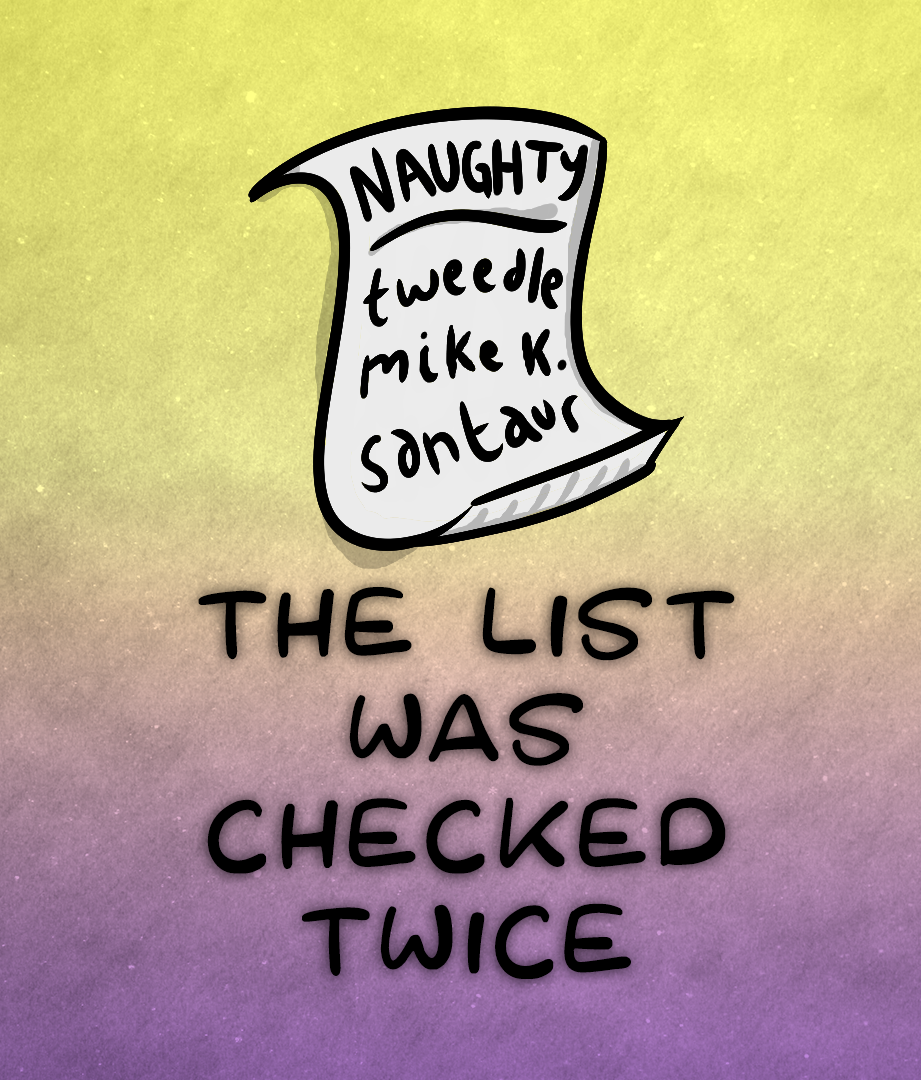 NAUGHTY
tweedle
mike K.
santaur
THE LIST
WAS
CHECKED
TWICE